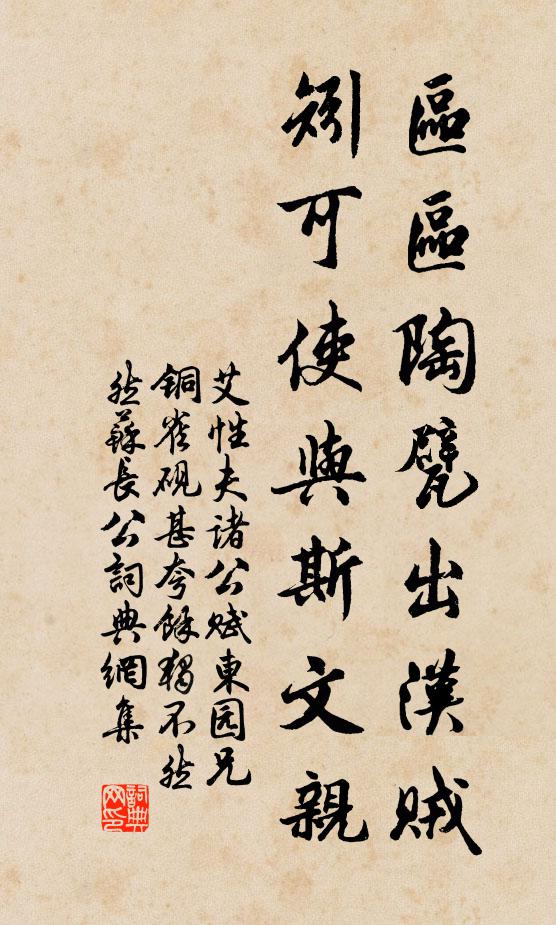 區區陶甓出漢賊
矧可使與斯文親
艾性夫諸公賦東园兄
銅雀硯甚夸餘獨不然
然蘇長公詞典網集
詞典网印